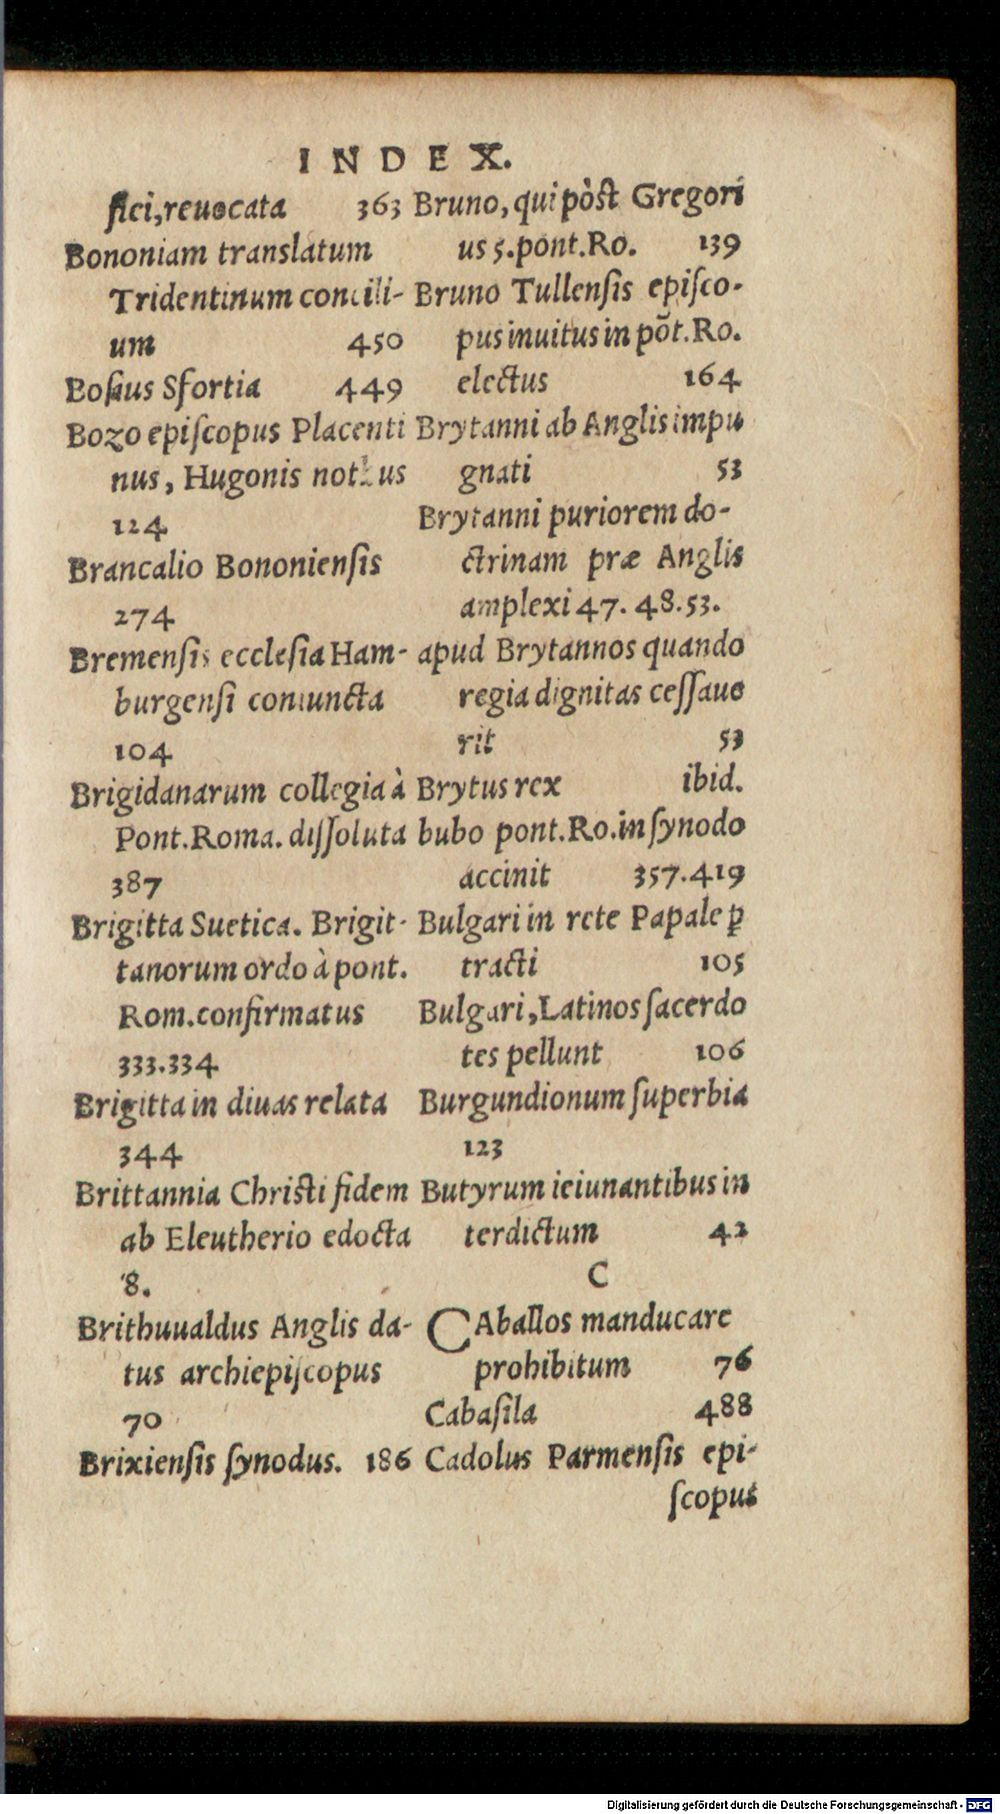 INDEX.
fici,reuocata 363
Bononiam translatum
Tridentinum concili-
um 450
Bosius Sfortia 449
Bozo episcopus Placenti
nus, Hugonis nothus
124
Brancalio Bononiensis
274
Bremensis ecclesia Ham-
burgensi coniuncta
104
Brigidanarum collegia à
Pont.Roma. dissoluta
387
Brigitta Suetica. Brigit-
tanorum ordo à pont.
Rom.confirmatus
333.334
Brigitta in diuas relata
344
Brittannia Christi fidem
ab Eleutherio edocta
8.
Brithuualdus Anglis da-
tus archiepiscopus
70
Brixiensis synodus. 186
Bruno, qui pòst Gregori
us 5.pont.Ro. 139
Bruno Tullensis episco-
pus inuitus in põt.Ro.
electus 164
Brytanni ab Anglis impu
gnati 53
Brytanni puriorem do-
ctrinam præ Anglis
amplexi 47. 48.53.
apud Brytannos quando
regia dignitas cessaue
rit 53
Brytus rex ibid.
bubo pont.Ro.in synodo
accinit 357.419
Bulgari in rete Papale ꝑ
tracti 105
Bulgari,Latinos sacerdo
tes pellunt 106
Burgundionum superbia
123
Butyrum ieiunantibus in
terdictum 42
C
CAballos manducare
prohibitum 76
Cabasila 488
Cadolus Parmensis epi-
scopus
Digitalisierung gefördert durch die Deutsche Forschungsgemeinschaft - DFG